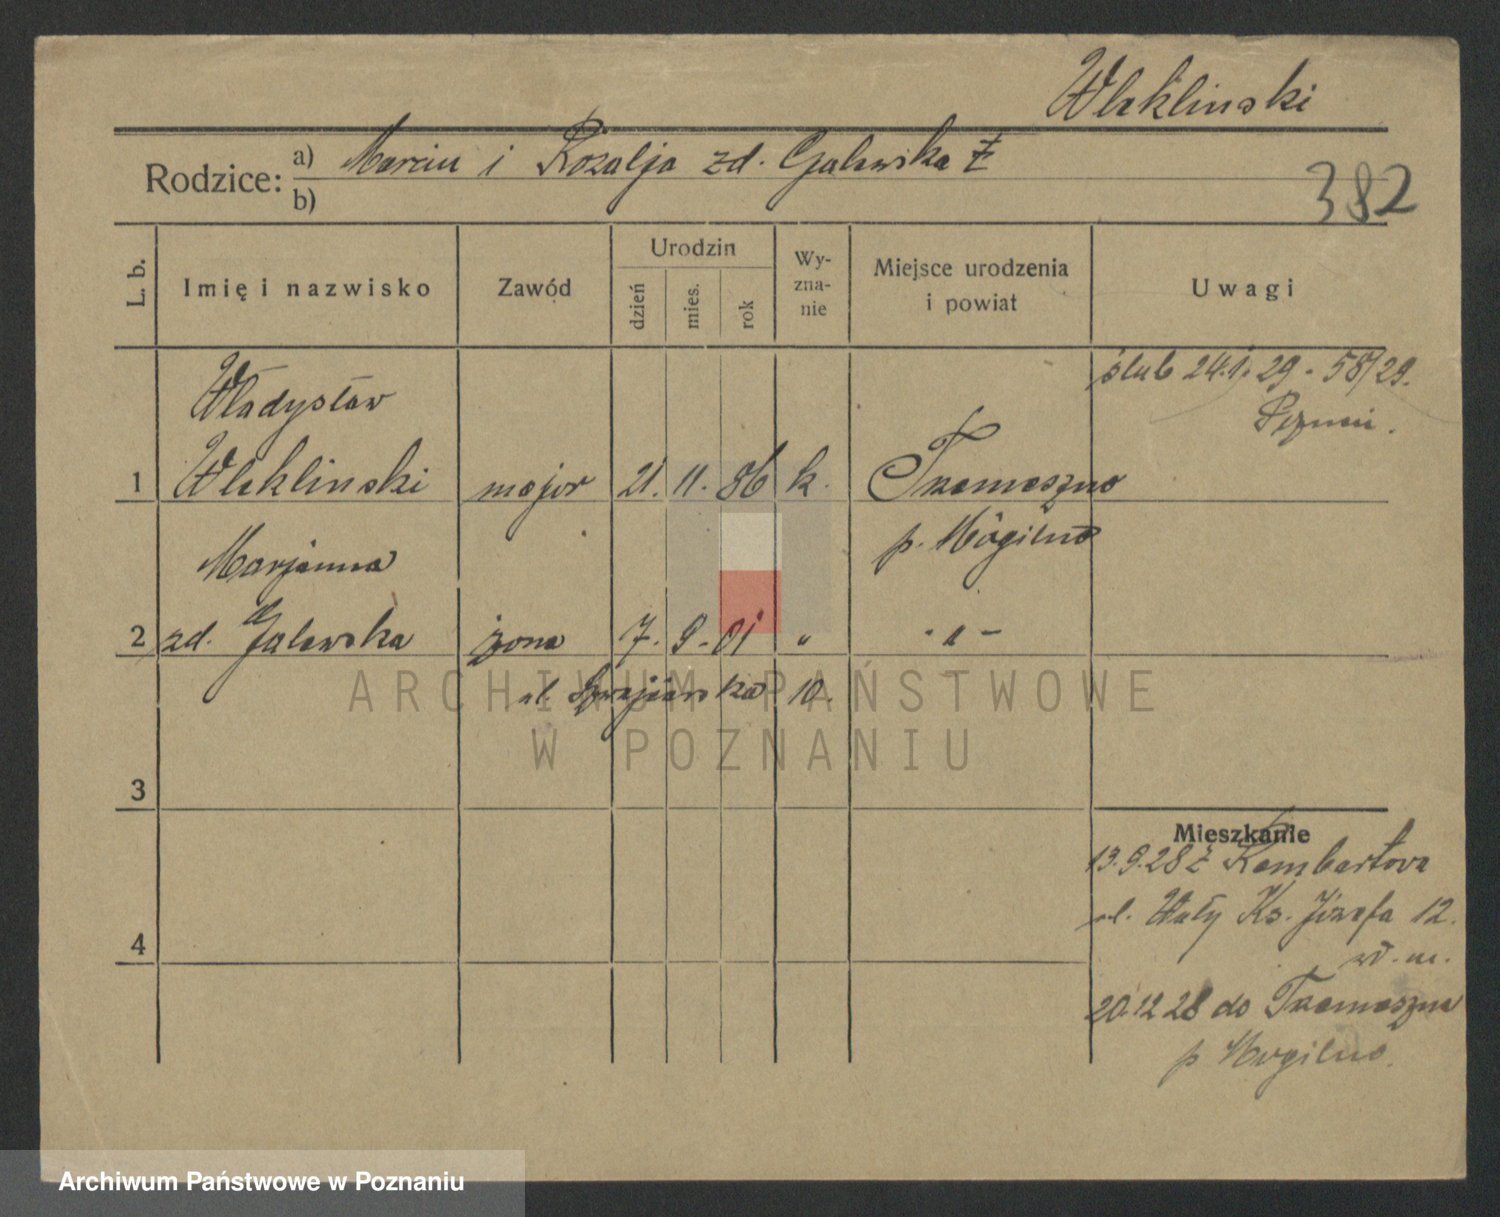 Wleklinski
Rodzice: a) Marcin i Rozalja zd. Galewska ż
b)
382
L. b. Imię i nazwisko Zawód Urodzin dzień mies. rok Wy-zna-nie Miejsce urodzenia i powiat Uwagi
ślub 24.1.29 - 58/29.
Władysław
Poznań.
1 Wleklinski major 21. 11. 86 k. Trzemeszno
p. Mogilno
Marjanna
2 zd. Galewska żona 7. 9. 01 " - " -
ul. Szwajcarska 10.
ARCHIWUM PAŃSTWOWE
W POZNANIU
3
Mieszkanie
13.9.28 z Rembertowa
ul. Wały Ks. Józefa 12.
4
20.12 28 do Trzemeszna
p Mogilno.
Archiwum Państwowe w Poznaniu